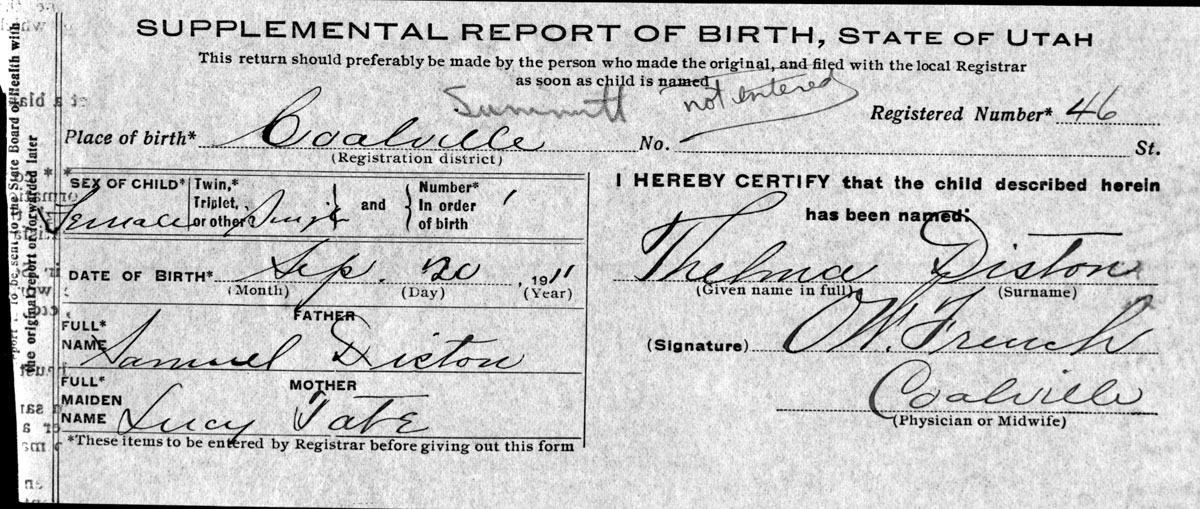 SUPPLEMENTAL REPORT OF BIRTH, STATE OF UTAH
This return should preferably be made by the person who made the original, and filed with the local Registrar
as soon as child is named
Summitt not entered
Registered Number* 46
Place of birth* Coalville No. St.
(Registration district)
SEX OF CHILD* Female
Twin,* Triplet, or other Single and
Number* In order of birth 1
I HEREBY CERTIFY that the child described herein
has been named:
Thelma Diston
(Given name in full) (Surname)
DATE OF BIRTH* Sep. 20, 1911
(Month) (Day) (Year)
FATHER
FULL* NAME Samuel Diston
(Signature) O W. French
MOTHER
FULL* MAIDEN NAME Lucy Tate
Coalville
(Physician or Midwife)
*These items to be entered by Registrar before giving out this form
to be sent to the State Board of Health with
the original report or forwarded later